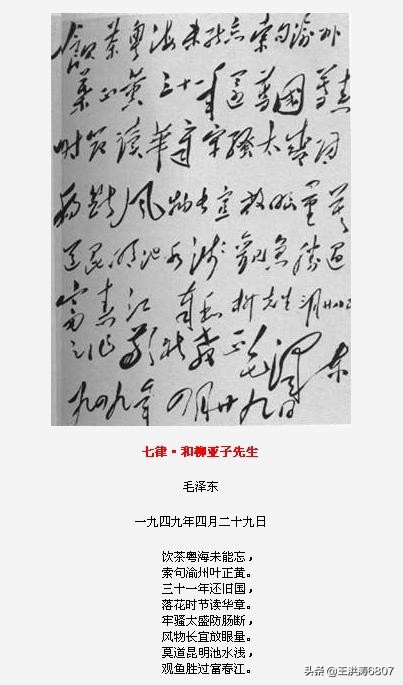 飲茶粤海未能忘索句渝州
葉正黄三十一年還舊國落花
时节读華章牢騷太盛防
腸断風物长宜放眼量莫
道昆明池水浅觀魚勝過
富春江 奉和柳先生三月廿八日
之作敬祈教正 毛泽东
一九四九年四月廿九日
七律·和柳亚子先生
毛泽东
一九四九年四月二十九日
饮茶粤海未能忘，
索句渝州叶正黄。
三十一年还旧国，
落花时节读华章。
牢骚太盛防肠断，
风物长宜放眼量。
莫道昆明池水浅，
观鱼胜过富春江。
头条 @王洪涛6807